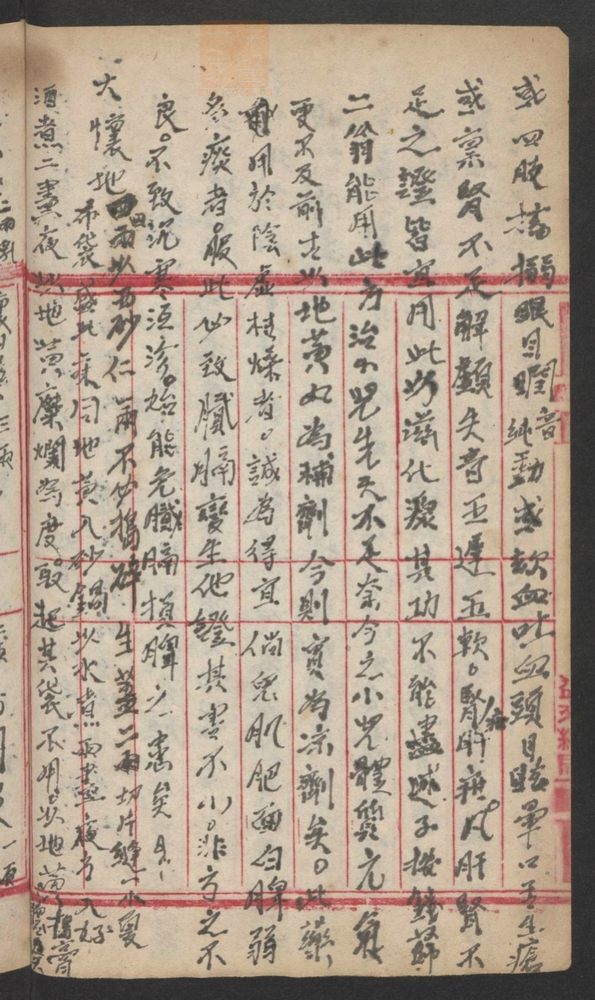 或四肢搐搦眼目瞤音純動或欬血吐血頭目眩暈口舌生瘡
或稟腎不足解顱失音五遲五軟腎肝疳病凡肝腎不
足之證皆宜用此以滋化源其功不能盡述予按錢薛
二翁能用此方治小兒先天不足奈今之小兒體質元氣
更不及前古以地黃丸為補劑今則實為涼劑矣此藥
用於陰虛枯燥者誠為得宜倘兒肌肥面白脾弱
多痰者服此必致膩膈變生他證其害不小非方之不
良不致沉寒洹冱始能免膩膈損脾之患矣
大懷地四兩以西砂仁兩不必搗碎生薑二兩切片縫一小夏
布袋盛此味同地黃入砂鍋以水煮兩晝夜方入好
酒煮二晝夜以地黃糜爛為度取起其袋不用以地黃搗膏